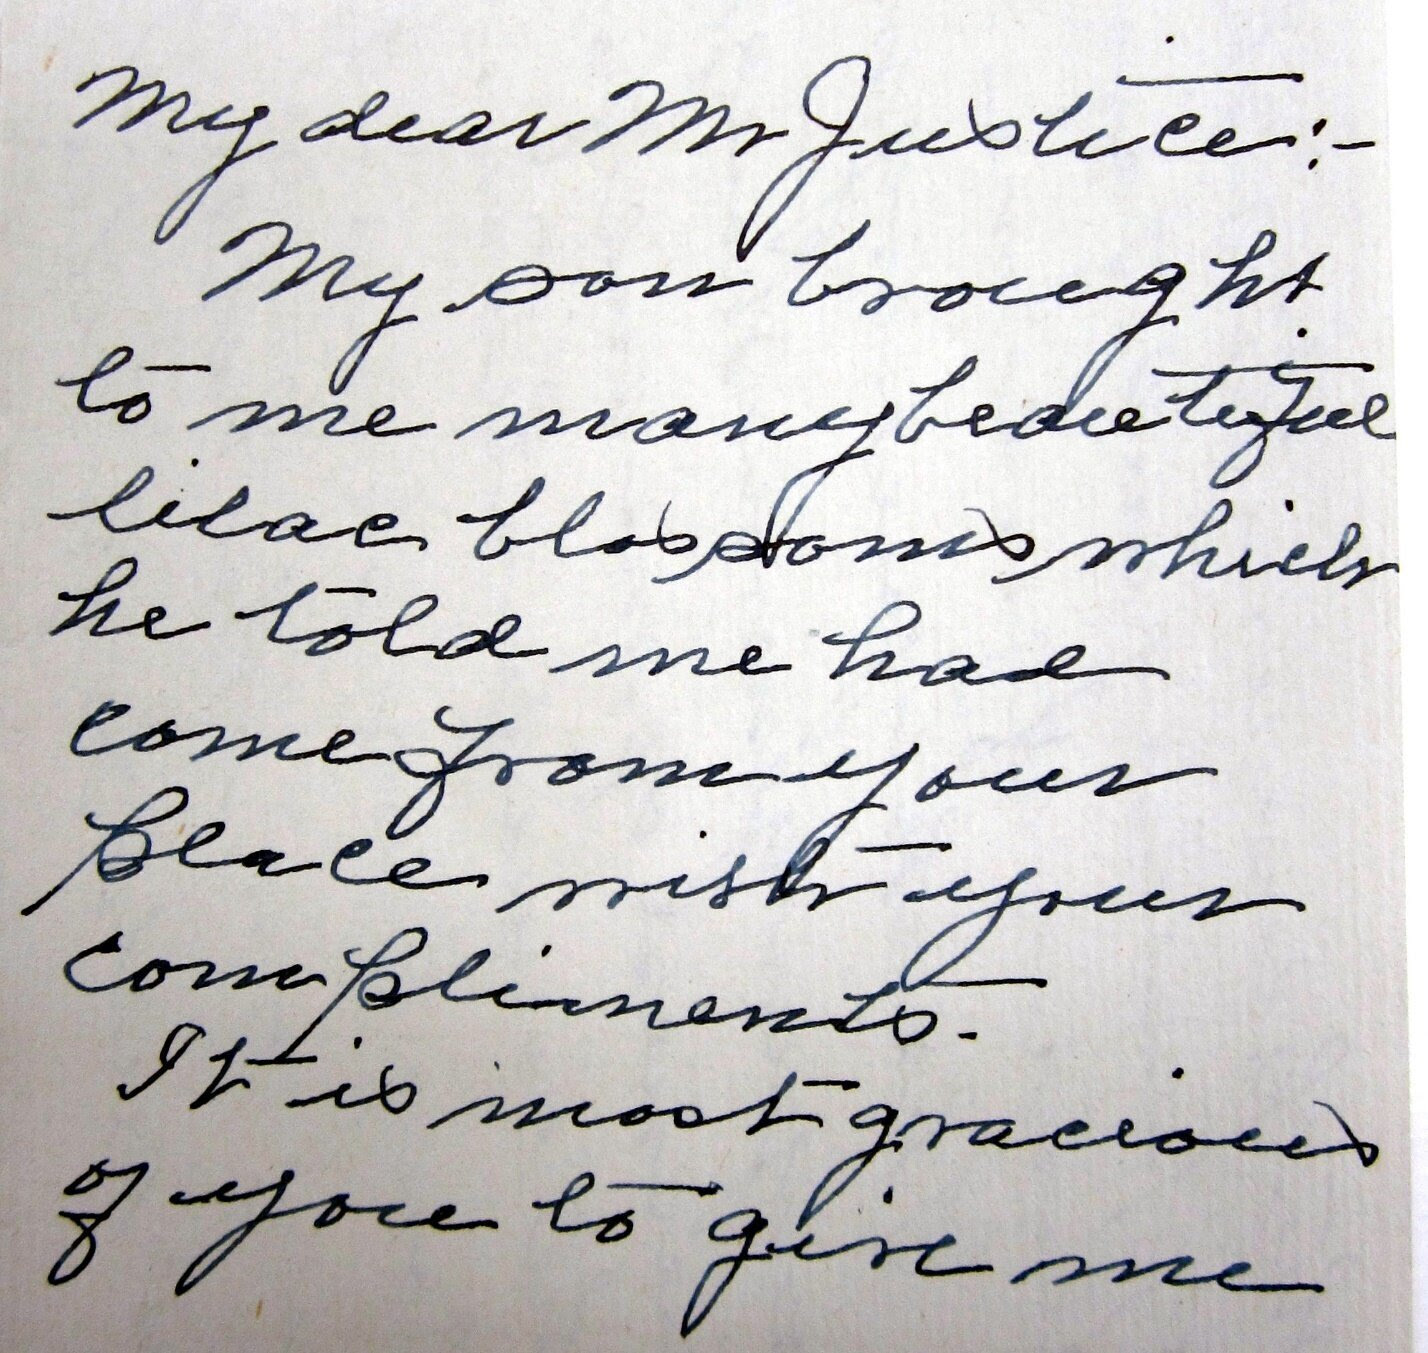 My dear Mr Justice:-
My son brought
to me many beautiful
lilac blossoms which
he told me had
come from your
place with your
compliments.
It is most gracious
of you to give me